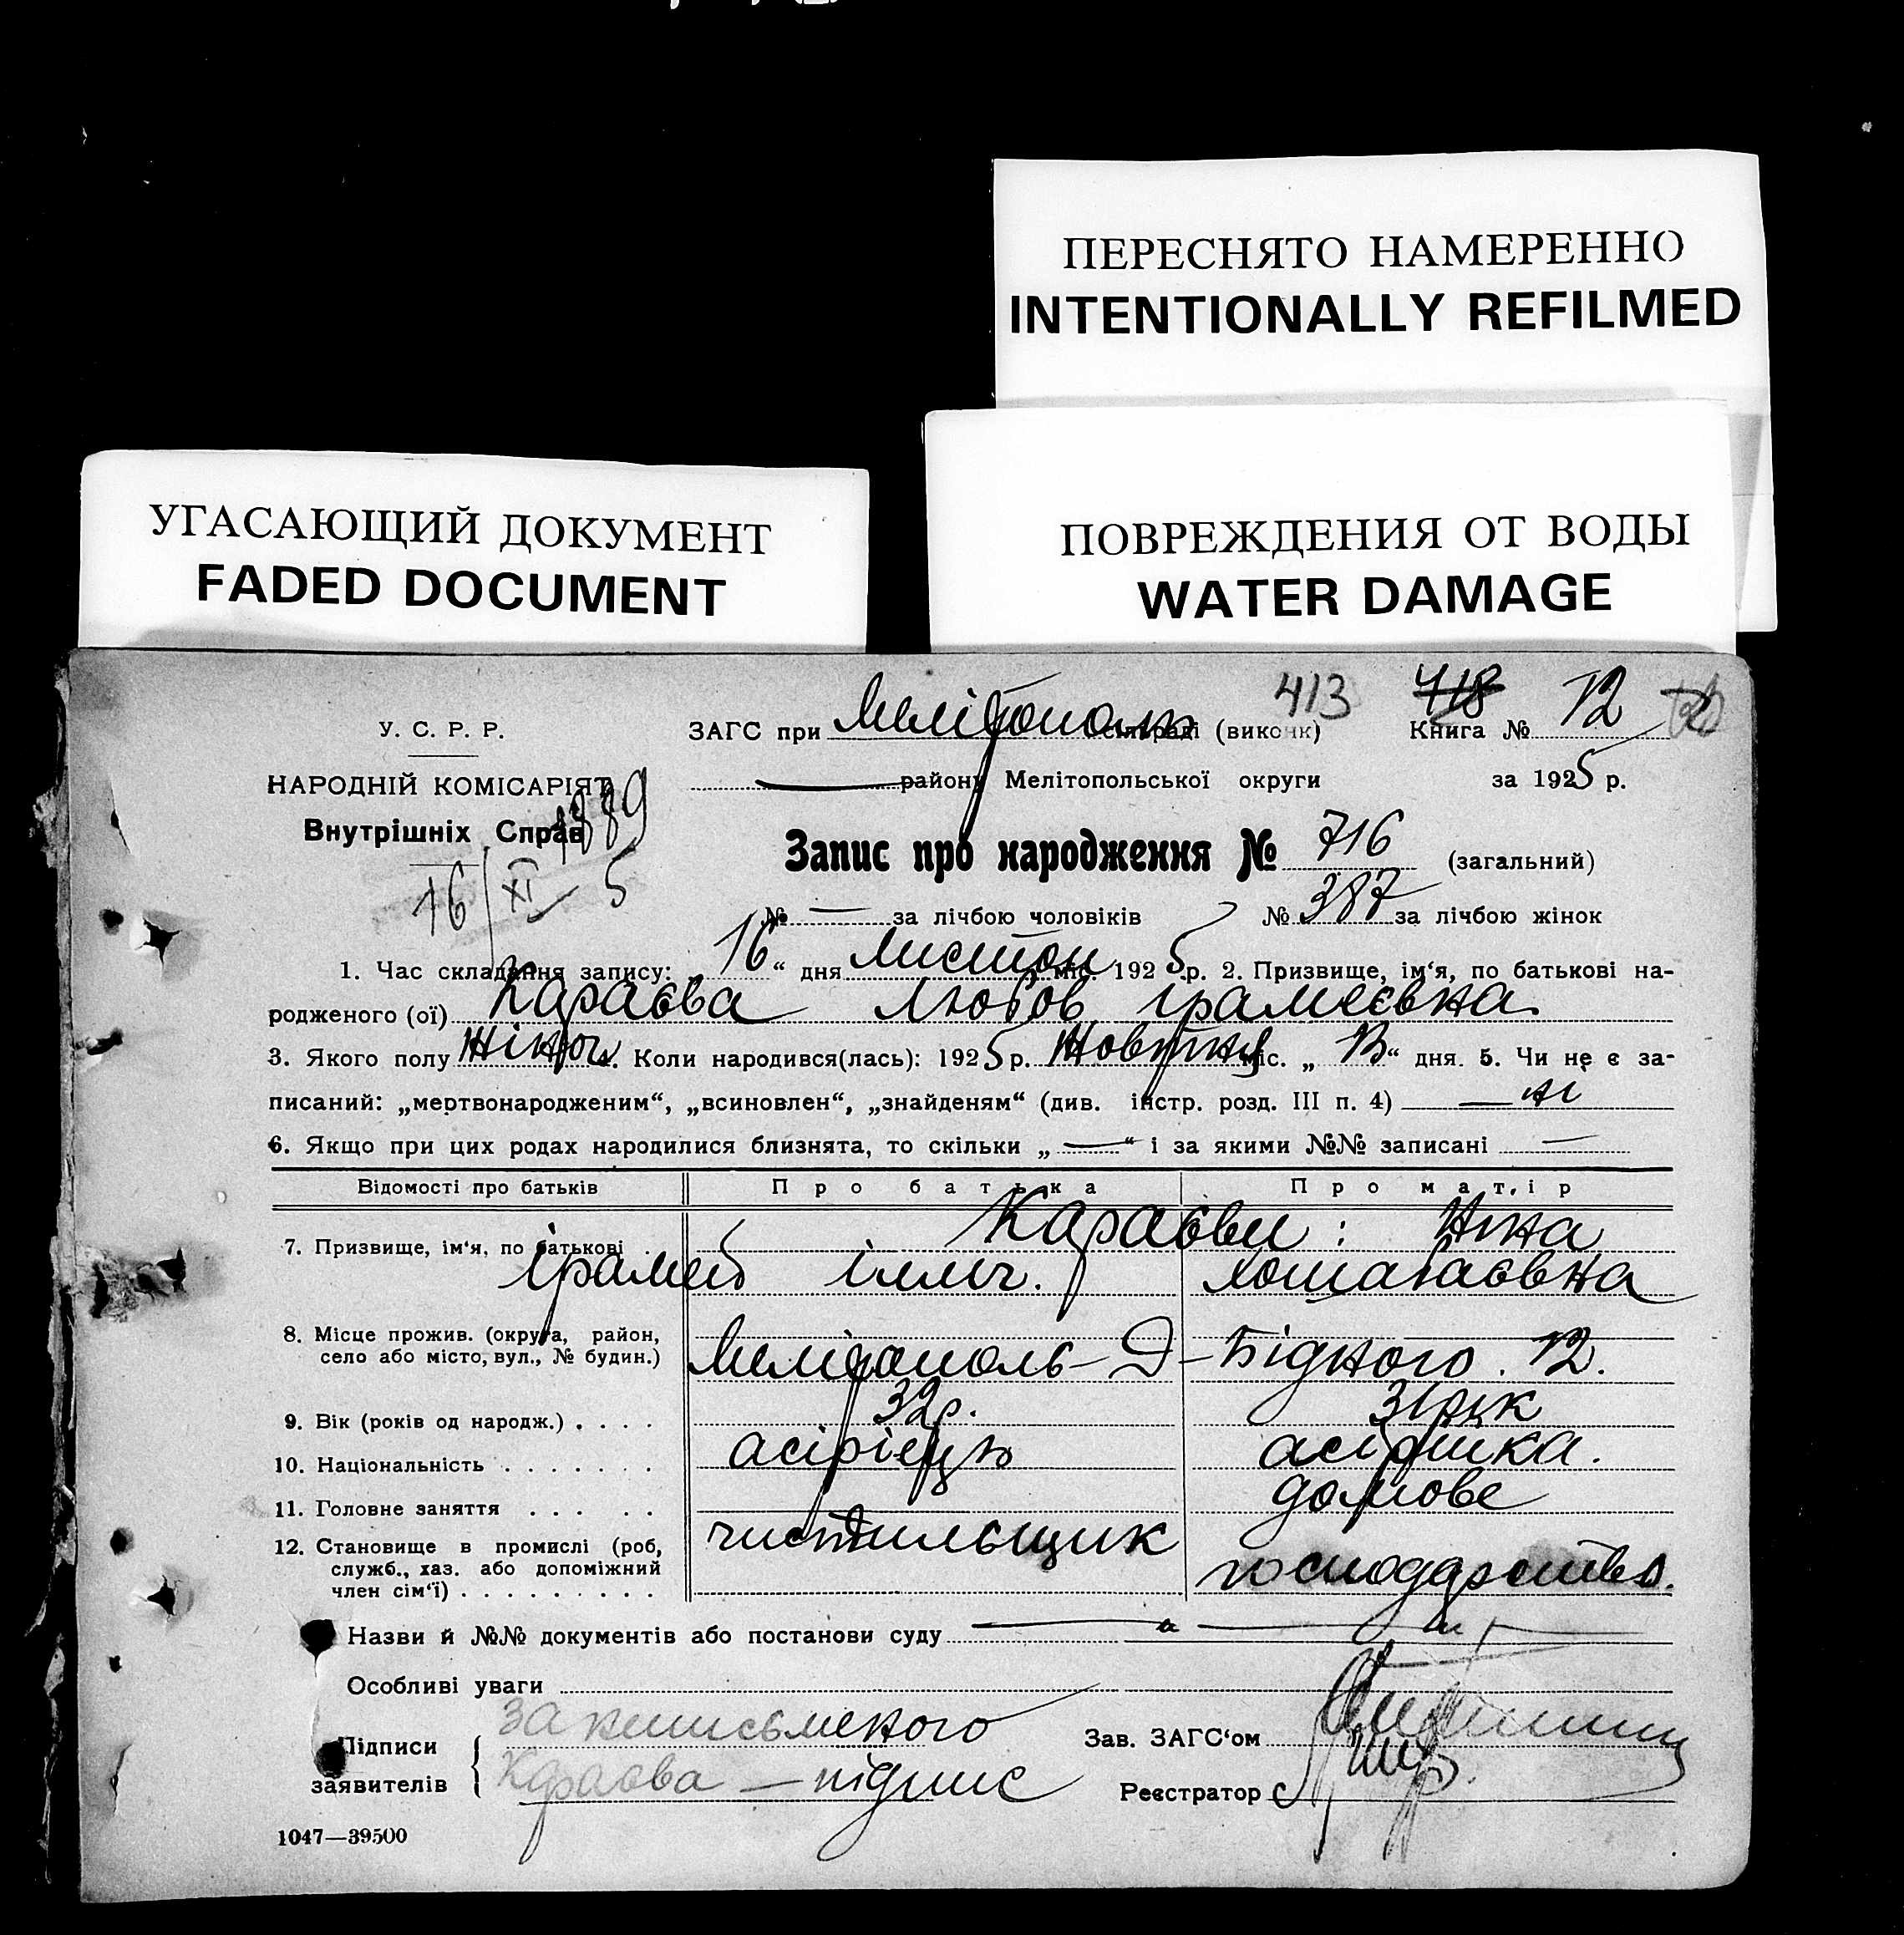 ПЕРЕСНЯТО НАМЕРЕННО
INTENTIONALLY REFILMED
УГАСАЮЩИЙ ДОКУМЕНТ
FADED DOCUMENT
ПОВРЕЖДЕНИЯ ОТ ВОДЫ
WATER DAMAGE
413 418
У. С. Р. Р.
ЗАГС при Мелітополь сільраді (виконк) Книга № 12
НАРОДНІЙ КОМІСАРІЯТ
Внутрішніх Справ
1889
16/XI 5
району Мелітопольської округи за 1925 р.
Запис про народження № 716 (загальний)
№ — за лічбою чоловіків № 387 за лічбою жінок
1. Час складання запису: 16 “ дня Листоп міс. 1925 р. 2. Призвище, ім‘я, по батькові на-
родженого (ої) Караєва Любов Ірамеєвна
3. Якого полу жіноч 4. Коли народився(лась): 1925 р. Жовтня міс. „ 13 “ дня. 5. Чи не є за-
писаний: „мертвонародженим“, „всиновлен“, „знайденям“ (див. інстр. розд. III п. 4) — ні
6. Якщо при цих родах народилися близнята, то скільки „ — “ і за якими №№ записані —
Відомості про батьків Про батька Про матір
7. Призвище, ім‘я, по батькові Караєви: Ніна
Ірамей Ілліч. Хошабаєвна
8. Місце прожив. (округа, район,
село або місто, вул., № будин.) Мелітополь – Д – Бідного. 12.
9. Вік (років од народж.) . . . . 32 р. 31 рік
10. Національність . . . . . . . асірієць асірійка.
11. Головне заняття . . . . . домове
12. Становище в промислі (роб, чистильщик
служб., хаз. або допоміжний господарство.
член сім‘ї) . . . . . . . . .
Назви й №№ документів або постанови суду
Особливі уваги
Підписи
заявителів
За неписьменого
Караєва — підпис
Зав. ЗАГС‘ом
Реєстратор
1047—39500